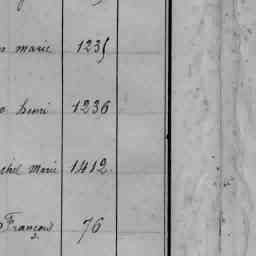 marie 1235
henri 1236
chel Marie 1412
François 76